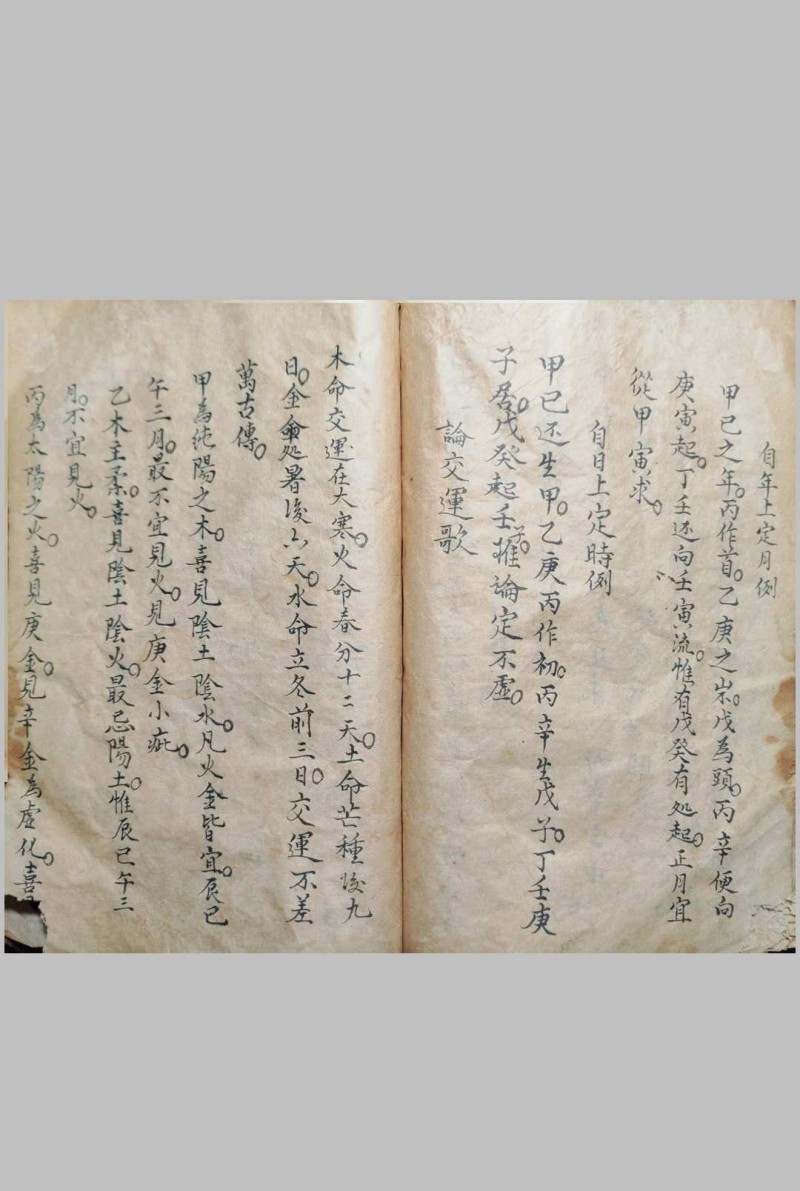 自年上定月例
甲己之年。丙作首。乙庚之岁。戊為頭。丙辛便向
庚寅起。丁壬还向壬寅流。惟有戊癸有処起。正月宜
從甲寅求。
自日上定時例
甲已还生甲。乙庚丙作初。丙辛生戊子。丁壬庚
子居。戊癸起壬子。推論定不虛。
論交運歌
木命交運在大寒。火命春分十二天。土命芒種後九
日。金命処暑後六天。水命立冬前三日。交運不差
萬古傳。
甲為純陽之木。喜見陰土陰水。凡火金皆宜。辰巳
午三月。最不宜見火。見庚金小疵。
乙木主柔。喜見陰土陰火。最忌陽土。惟辰巳午三
月。不宜見火。
丙為太陽之火。喜見庚金。見辛金為虛化。喜